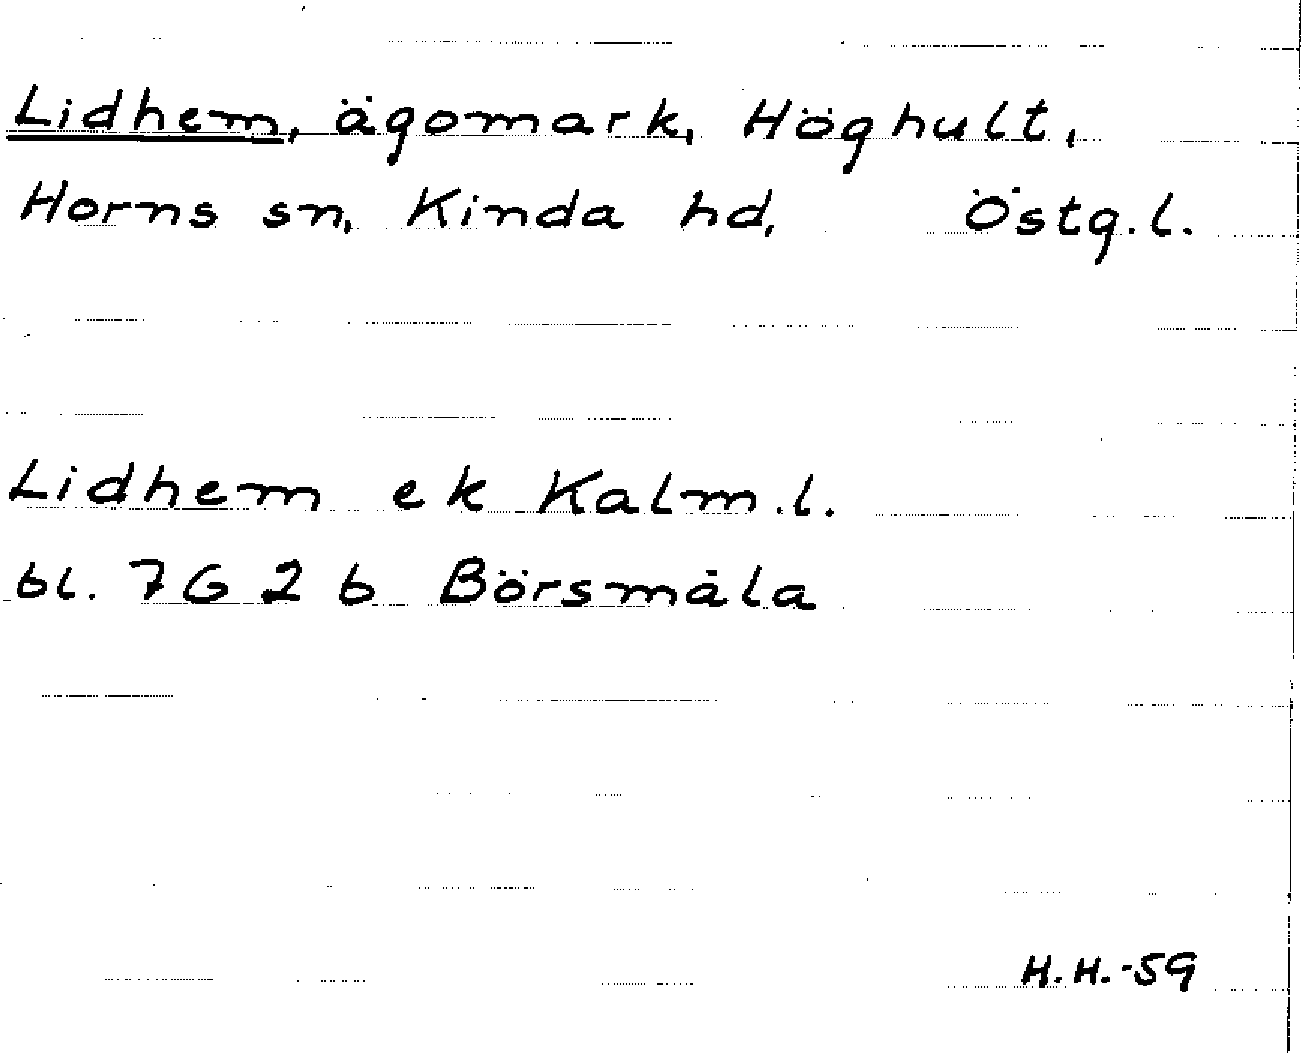 Lidhem, ägomark, Höghult,
Horns sn, Kinda hd, Östg.l.
Lidhem ek Kalm.l.
bl. 7G 2 b Börsmåla
H.H.-59